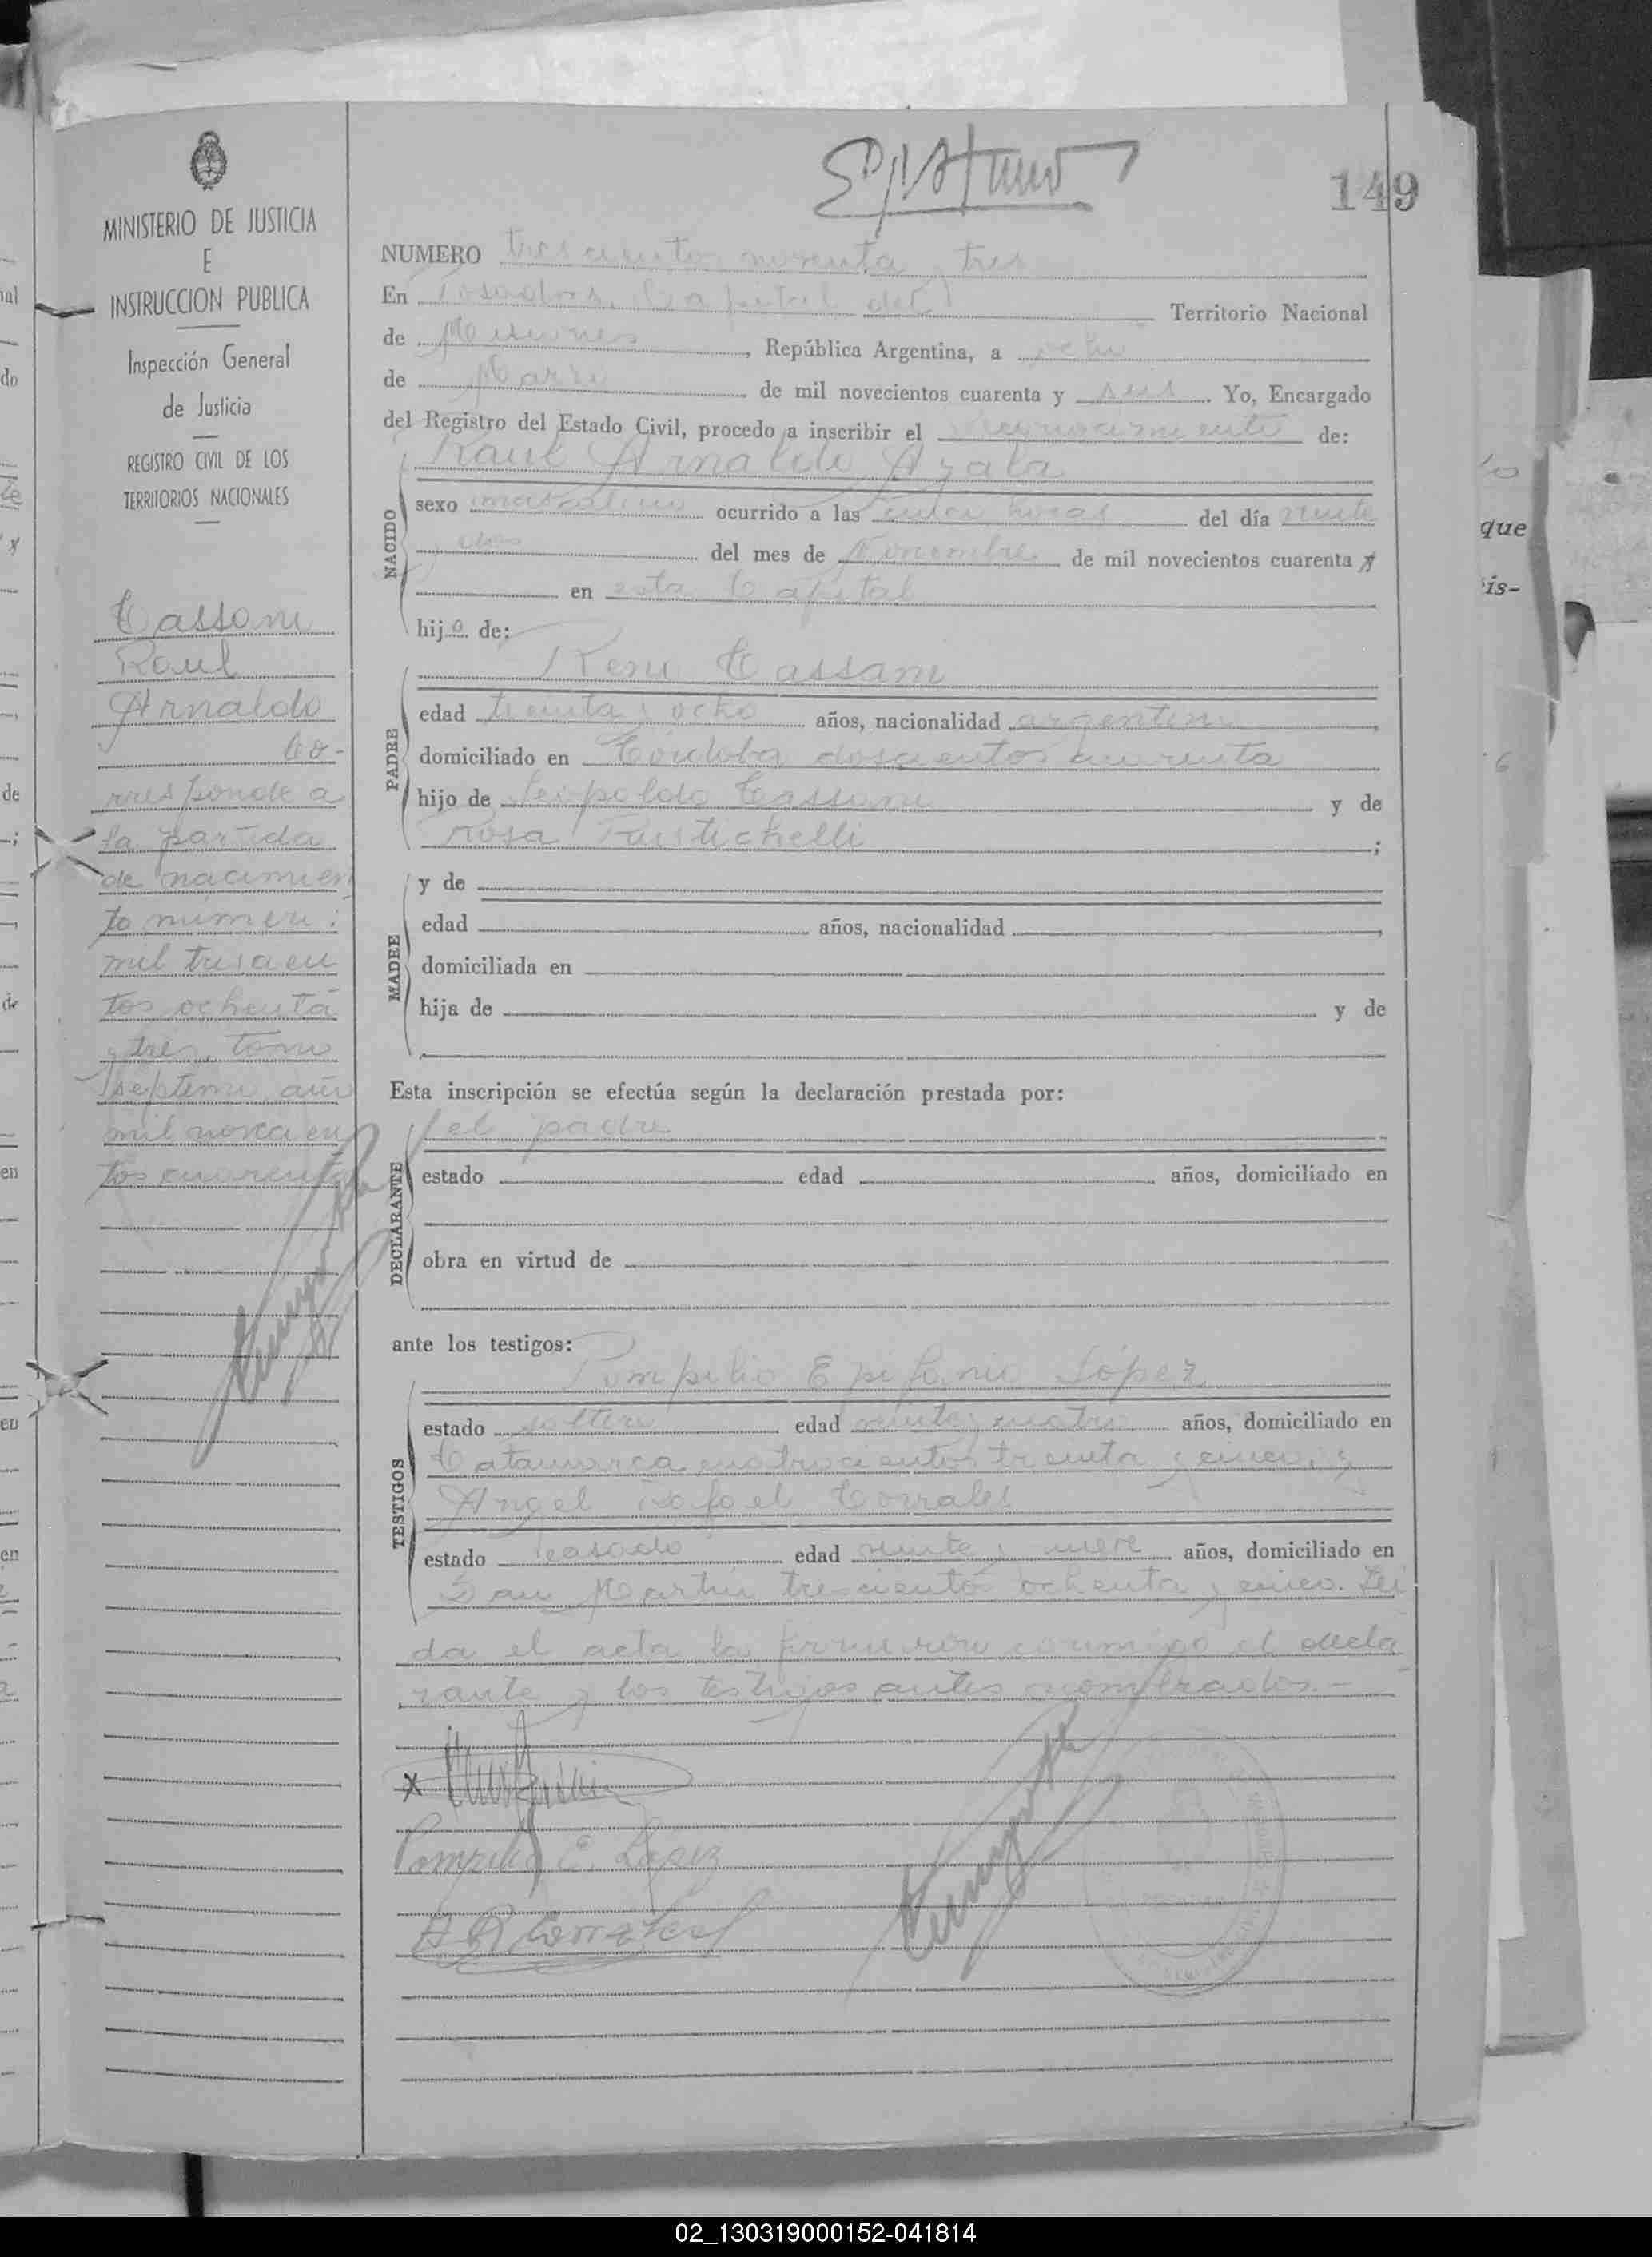 149
MINISTERIO DE JUSTICIA
E
INSTRUCCION PUBLICA
Inspección General
de Justicia
REGISTRO CIVIL DE LOS
TERRITORIOS NACIONALES
Cassani
Raul
Arnaldo
Co-
rresponde a
la partida
de nacimien
to número:
mil trescien
tos ochenta
y tres, tomo
septimo año
mil novecien
tos cuarenta
NUMERO trescientos noventa y tres
En Posadas, Capital del Territorio Nacional
de Misiones, República Argentina, a ocho
de Marzo de mil novecientos cuarenta y seis. Yo, Encargado
del Registro del Estado Civil, procedo a inscribir el reconocimiento de:
Raul Arnaldo Ayala
NACIDO
sexo masculino ocurrido a las horas del día veinte
y dos del mes de Noviembre de mil novecientos cuarenta y
en esta Capital
hijo de:
René Cassani
PADRE
edad treinta y ocho años, nacionalidad argentino
domiciliado en Córdoba doscientos cuarenta
hijo de Leopoldo Cassani y de
Rosa Rustichelli;
MADRE
y de
edad años, nacionalidad
domiciliada en
hija de y de
Esta inscripción se efectúa según la declaración prestada por:
el padre
DECLARANTE
estado edad años, domiciliado en
obra en virtud de
ante los testigos:
Pompilio Epifanio López
TESTIGOS
estado soltero edad veinte y cuatro años, domiciliado en
Catamarca cuatrocientos treinta y cinco; y
Angel Rafael Corrales
estado casado edad veinte y nueve años, domiciliado en
San Martín trescientos ochenta y cinco. Leí
da el acta la firmaron conmigo el decla
rante y los testigos antes nombrados.-
x
Pompilio E. López
A R Corrales
que
is-
02_130319000152-041814